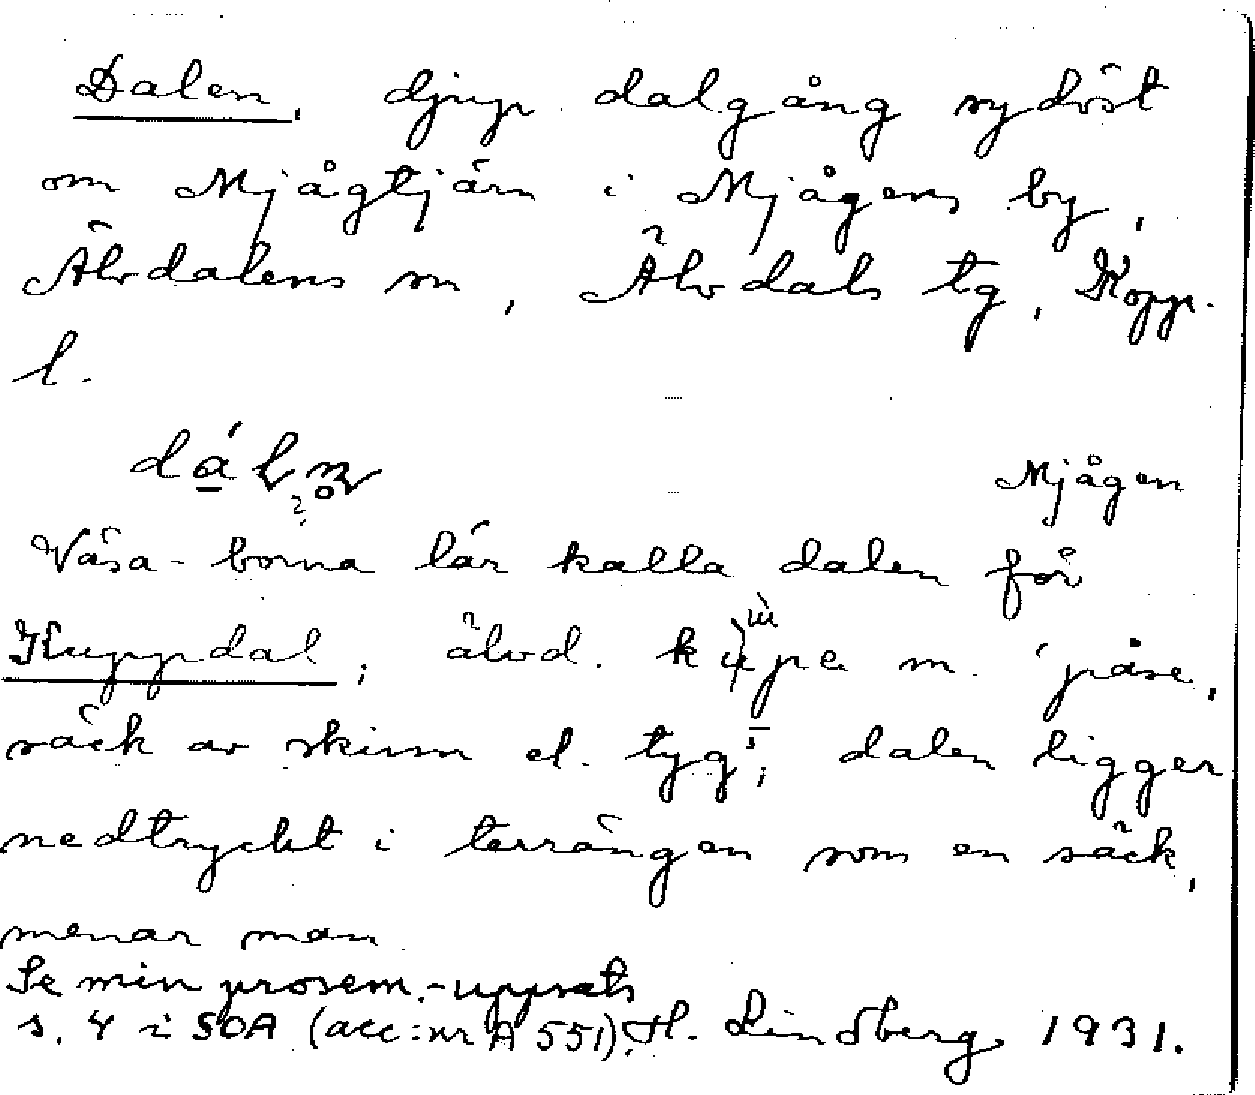 Dalen, djup dalgång sydöst
om Mjågtjärn i Mjågens by,
Älvdalens sn, Älvdals tg, Kopp.
l.
Mjågen
Väsa-borna lär kalla dalen för
Kuppdal; älvd. m. 'påse,
säck av skinn el. tyg'; dalen ligger
nedtryckt i terrängen som en säck,
menar man
Se min prosem.-uppsats
s. 4 i SOA (acc:nr A 551). H. Lindberg 1931.